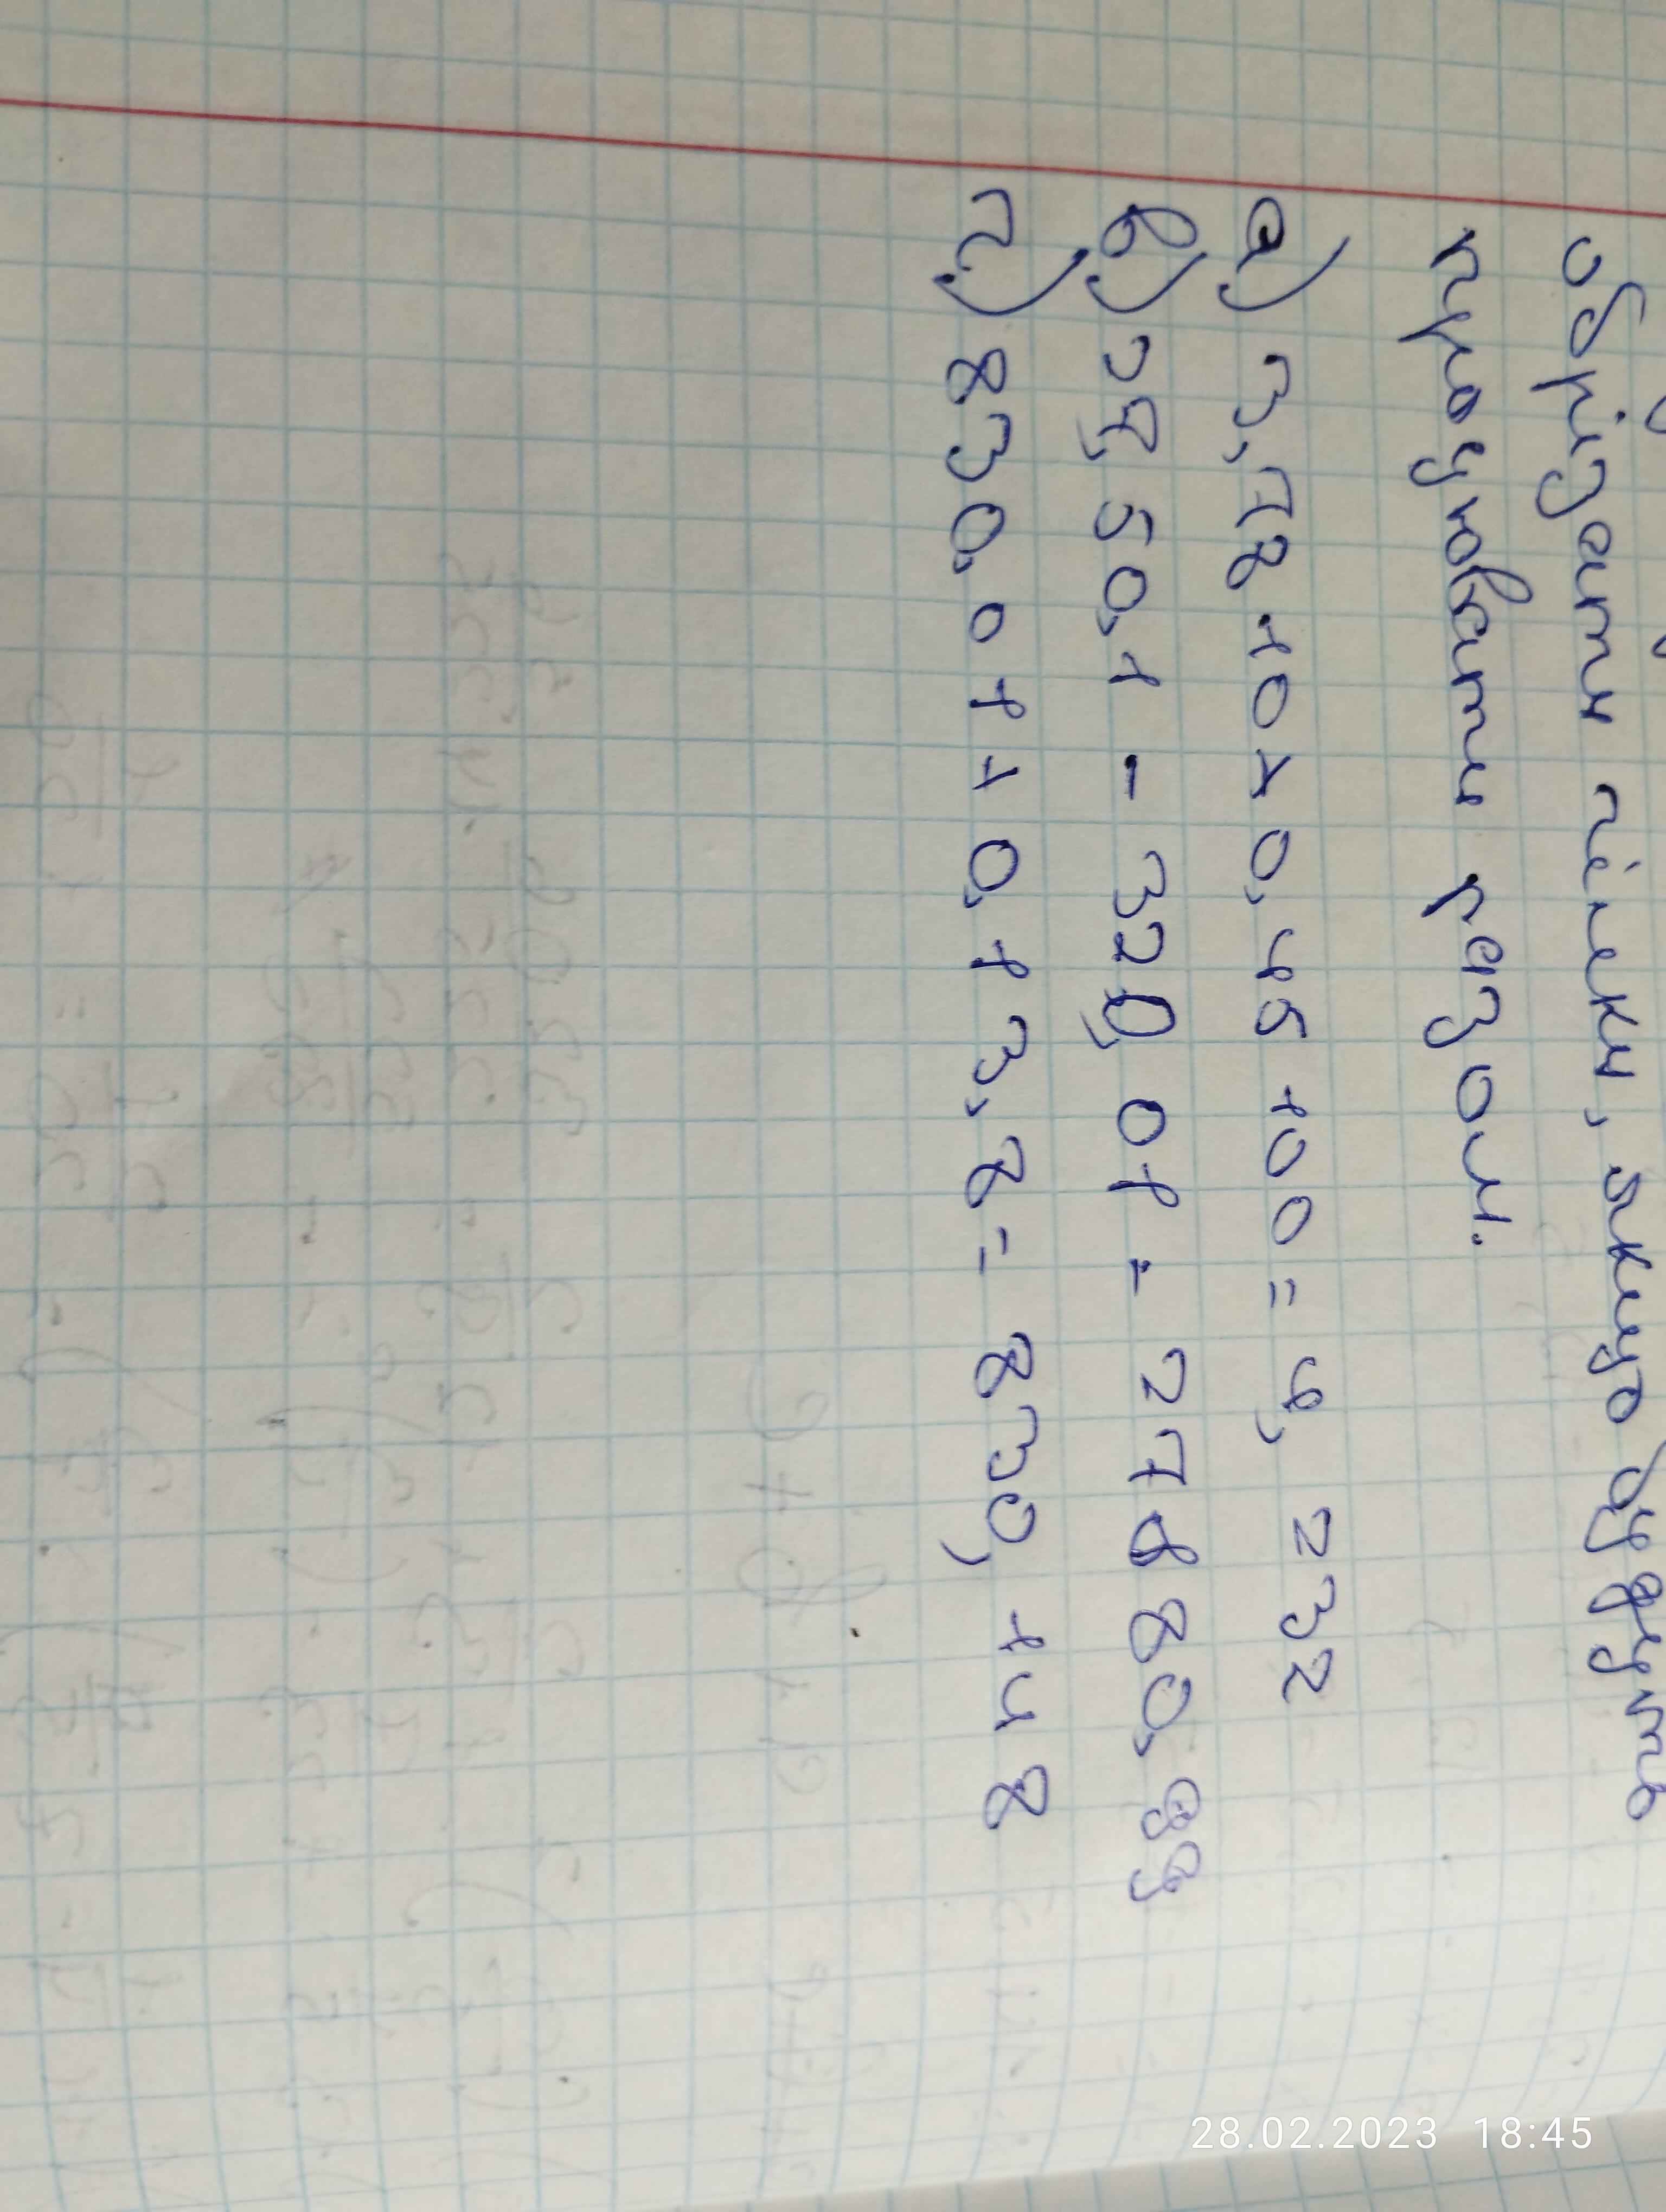 обрізати гілки, якщо будуть
працювати разом.
а) 3,78 10 + 0,45 100 = 4, 232
в) 27, 50,1 - 320, 01 = 27880, 99
г) 830, 01 + 0,13,8 = 830, 148
28.02.2023 18:45